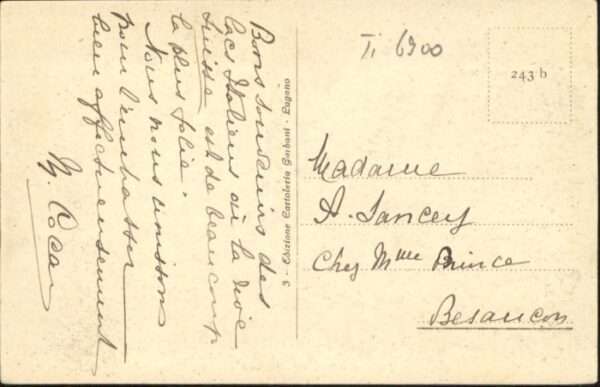 Bons souvenirs des
lacs Italiens où la rive
suisse est de beaucoup
la plus jolie.
Nous nous unissons
pour l'embrasser
bien affectueusement
3 - Edizione Cartoleria Garbani - Lugano
Ti 6900
243 b
Madame
A. Lancey
Chez Mme Prince
Besançon